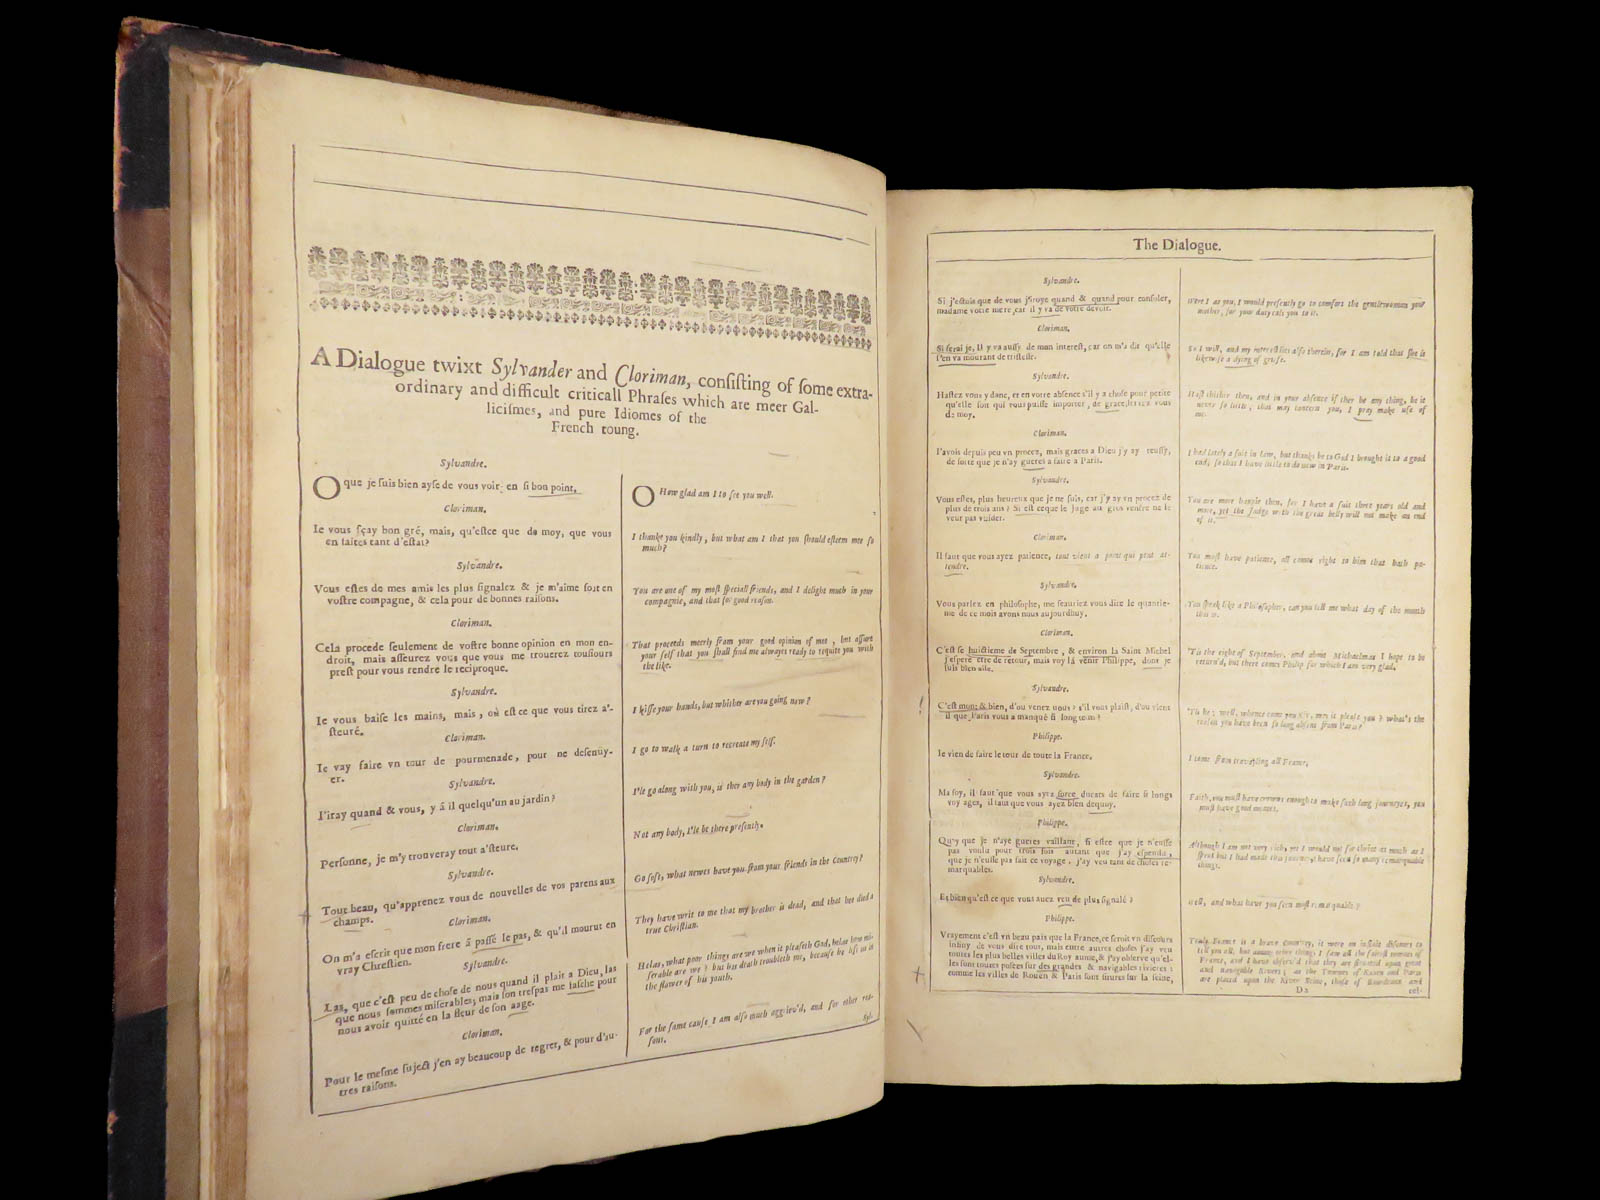 A Dialogue twixt Sylvander and Cloriman, consisting of some extra-
ordinary and difficult criticall Phrases which are meer Gal-
licismes, and pure Idiomes of the
French toung.
Sylvandre.
O que je suis bien ayse de vous voir en si bon point,
Cloriman.
Ie vous sçay bon gré, mais, qu'estce que de moy, que vous
en faites tant d'estat?
Sylvandre.
Vous estes de mes amis les plus signalez & je m'aime fort en
vostre compagne, & cela pour de bonnes raisons.
Cloriman.
Cela procede seulement de vostre bonne opinion en mon en-
droit, mais asseurez vous que vous me trouerez tousiours
prest pour vous rendre le reciproque.
Sylvandre.
Ie vous baise les mains, mais, où est ce que vous tirez a'-
steuré.
Cloriman.
Ie vay faire vn tour de pourmenade, pour ne desenüy-
er.
Sylvandre.
I'iray quand & vous, y á il quelqu'un au jardin?
Cloriman.
Personne, je m'y trouveray tout a'steure.
Sylvandre.
Tout beau, qu'apprenez vous de nouvelles de vos parens aux
champs.
Cloriman.
On m'a escrit que mon frere á passé le pas, & qu'il mourut en
vray Chrestien.
Sylvandre.
Las, que c'est peu de chose de nous quand il plait a Dieu, las
que nous sommes miserables; mais son trespas me fasche pour
nous avoir quitté en la fleur de son aage.
Cloriman.
Pour le mesme suject j'en ay beaucoup de regret, & pour d'au-
tres raisons.
O How glad am I to see you well.
I thanke you kindly, but what am I that you should esteem mee so
much?
You are one of my most speciall friends, and I delight much in your
compagnie, and that for good reason.
That proceeds meerly from your good opinion of mee, but assure
your self that you shall find me alwayes ready to requite you with
the like.
I kisse your hands, but whither are you going now?
I go to walk a turn to recreate my self.
I'le go along with you, is ther any body in the garden?
Not any body, I'le be there presently.
Go soft, what newes have you from your friends in the Countrey?
They have writ to me that my brother is dead, and that hee died a
true Christian.
Helas, what poor things are we when it pleaseth God, helas how mi-
serable are we? but his death troubleth me, because he left us in
the flower of his youth.
For the same cause I am also much aggriev'd, and for other rea-
sons.
Syl-
The Dialogue.
Sylvandre.
Si j'estois que de vous j'iroye quand & quand pour consoler,
madame votre mere, car il y va de votre devoir.
Cloriman.
Si ferai je, Il y va aussy de mon interest, car on m'a dit qu'elle
s'en va mourant de tristesse.
Sylvandre.
Hastez vous y donc, et en votre absence s'il y a chose pour petite
qu'elle soit qui vous puisse importer, de grace, servez vous
de moy.
Cloriman.
I'avois depuis peu vn procez, mais graces a Dieu j'y ay reussy,
de sorte que je n'ay gueres a faire a Paris.
Sylvandre.
Vous estes, plus heureux que je ne suis, car j'y ay vn procez de
plus de trois ans? Si est ce que le Juge au gros ventre ne le
veut pas vuider.
Cloriman.
Il faut que vous ayez patience, tout vient a point qui peut at-
tendre.
Sylvandre.
Vous parlez en philosophe, me sçauriez vous dire le quantie-
me de ce mois avons nous aujourdhuy.
Cloriman.
C'est le huictieme de Septembre, & environ la Saint Michel
j'espere être de retour, mais voy lá venir Philippe, dont je
suis bien aise.
Sylvandre.
C'est mon; & bien, d'ou venez nous? s'il vous plaist, d'ou vient
il que Paris vous a manqué si long tems?
Philippe.
Ie vien de faire le tour de toute la France.
Sylvandre.
Ma foy, il faut que vous ayez force ducats de faire si longs
voyages, il faut que vous ayez bien dequoy.
Philippe.
Quoy que je n'aye gueres vaillant, si estce que je n'eusse
pas voulu pour trois fois autant que j'ay espendu,
que je n'eusse pas fait ce voyage, j'ay veu tant de choses re-
marquables.
Sylvandre.
Et bien qu'est ce que vous auez veu de plus signalé?
Philippe.
Vrayement c'est vn beau pais que la France, ce seroit vn discours
infiny de vous dire tout, mais entre autres choses j'ay veu
toutes les plus belles villes du Roy aume, & j'ay observe qu'el-
les sont toutes postées sur des grandes & navigables rivieres:
comme les villes de Rouën & Paris sont situres sur la Seine,
Were I as you, I would presently go to comfort the gentlewoman your
mother, for your duty cals you to it.
So I will, and my interest lies also therein, for I am told that she is
likewise a dying of griefe.
Hast thither then, and in your absence if ther be any thing, be it
never so little, that may concern you, I pray make use of
me.
I had lately a suit in law, but thanks be to God I brought it to a good
end; so that I have little to do now in Paris.
You are more happie then, for I have a suit three years old and
more, yet the Judge with the great belly will not make an end
of it.
You must have patience, all comes right to him that hath pa-
tience.
You speak like a Philosopher, can you tell me what day of the month
this is.
'Tis the eight of September, and about Michaelmas I hope to be
return'd, but there comes Philip for which I am very glad.
'Tis he; well, whence come you Sir, may it please you? what's the
reason you have been so long absent from Paris?
I come from travelling all France.
Faith, you must have crowns enough to make such long journeyes, you
must have good meanes.
Although I am not very rich, yet I would not for thrice as much as I
spent but I had made this journey, I have seen so many remarquable
things.
Well, and what have you seen most remarquable?
Truly France is a brave Countrey, it were an infinite discours to
tell you all, but among other things I saw all the fairest townes of
France, and I have observ'd that they are situated upon great
and navigable Rivers; as the Townes of Rouen and Paris
are placed upon the River Seine, those of Bourdeaux and
D2
tol-